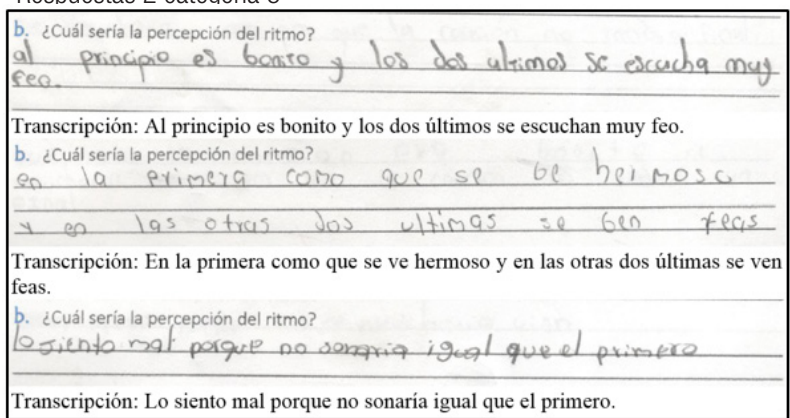 Respuestas E categoría 3
b. ¿Cuál sería la percepción del ritmo?
al principio es bonito y los dos ultimos se escucha muy
feo.
Transcripción: Al principio es bonito y los dos últimos se escuchan muy feo.
b. ¿Cuál sería la percepción del ritmo?
en la primera como que se be hermoso
y en las otras dos ultimas se ben feas
Transcripción: En la primera como que se ve hermoso y en las otras dos últimas se ven
feas.
b. ¿Cuál sería la percepción del ritmo?
lo siento mal porque no sonaria igual que el primero
Transcripción: Lo siento mal porque no sonaría igual que el primero.